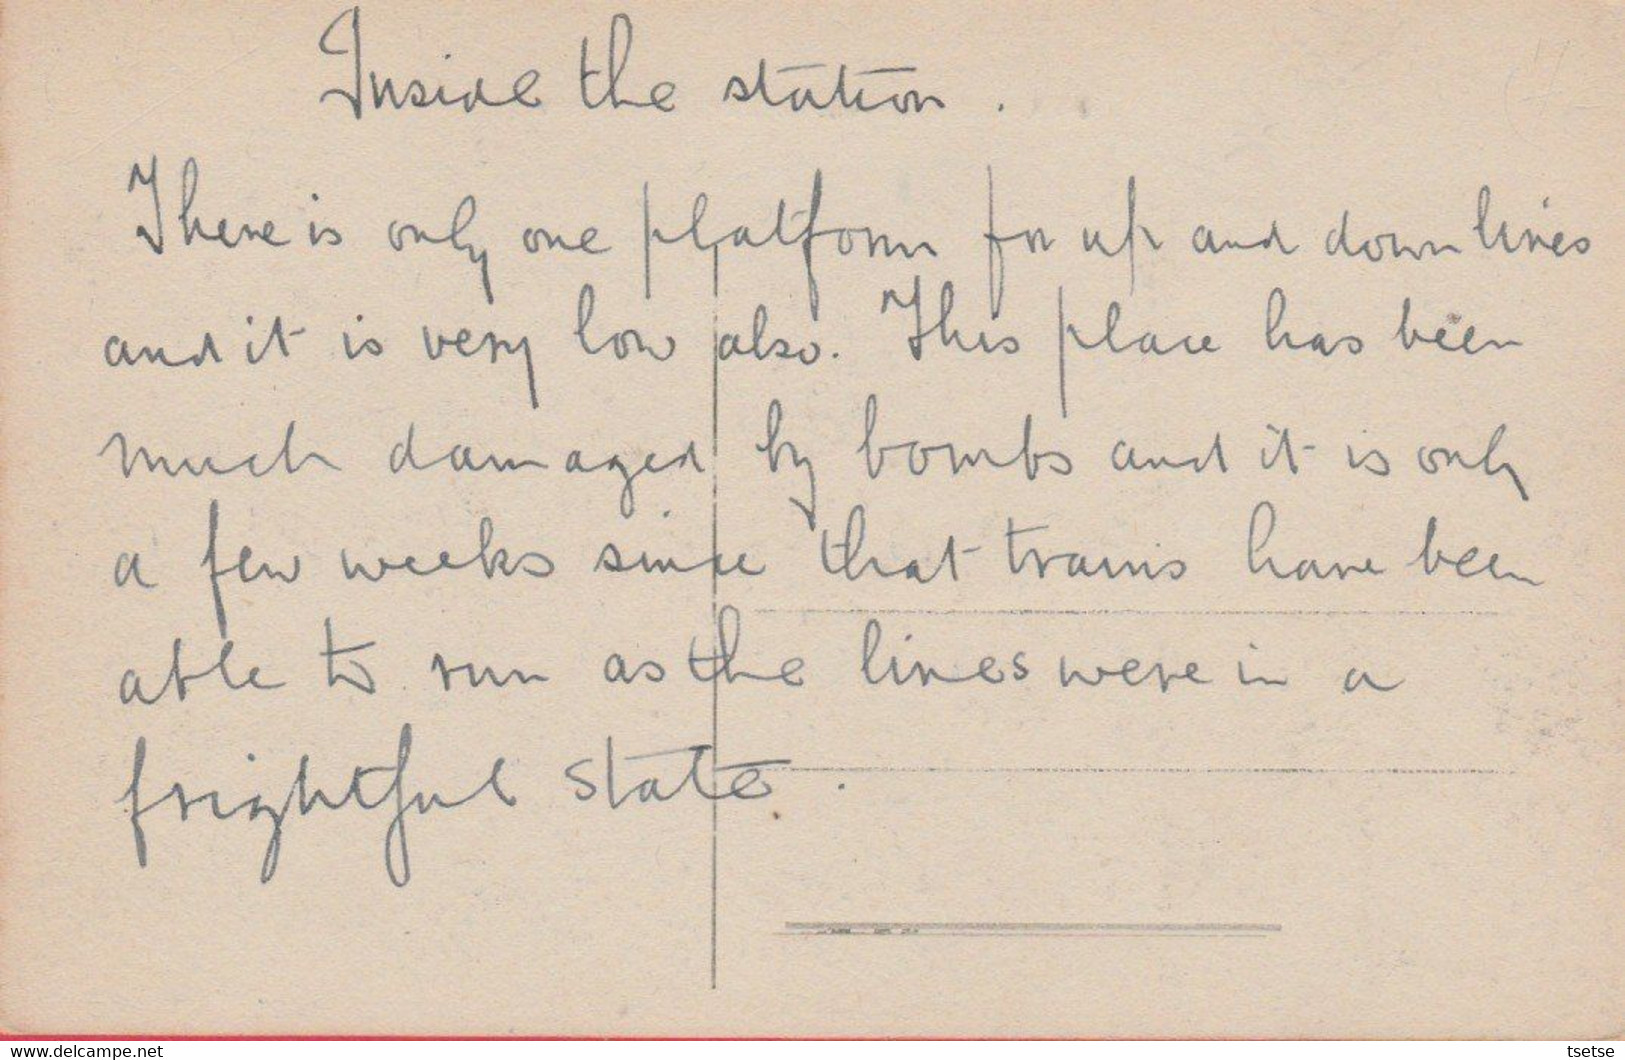 Inside the station.
There is only one platform for up and down lines
and it is very low also. This place has been
much damaged by bombs and it is only
a few weeks since that trains have been
able to run as the lines were in a
frightful state.
www.delcampe.net
tsetse